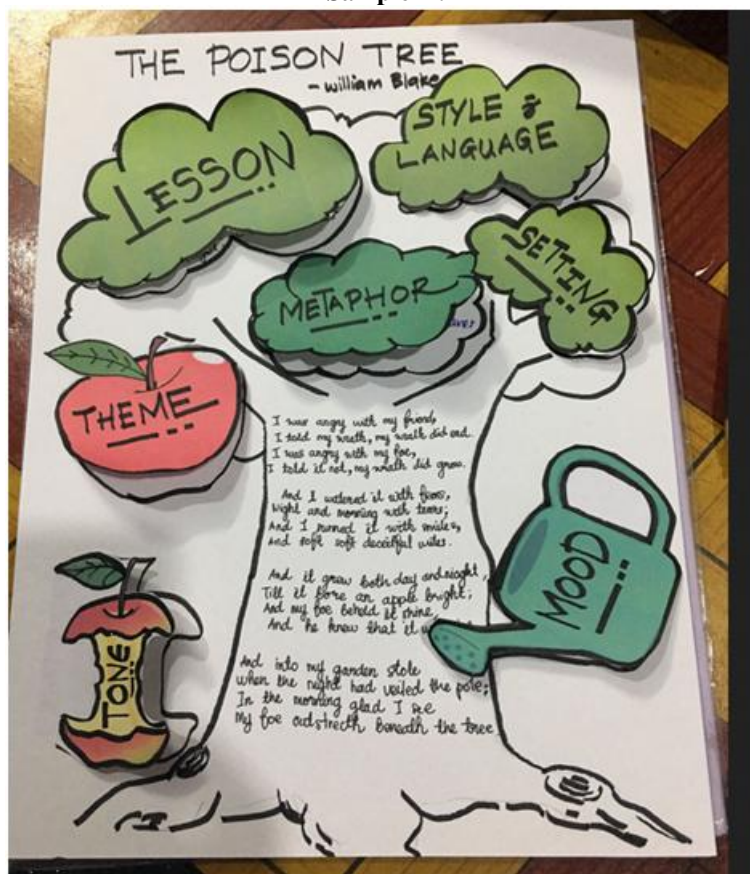 THE POISON TREE
- William Blake
LESSON
STYLE &
LANGUAGE
SETTING
METAPHOR
THEME
I was angry with my friend,
I told my wrath, my wrath did end.
I was angry with my foe,
I told it not, my wrath did grow.
And I watered it with fears,
Night and morning with tears;
And I sunned it with smiles,
And soft soft deceitful wiles.
And it grew both day and night,
Till it bore an apple bright;
And my foe behold it shine,
And he knew that it
MOOD
TONE
And into my garden stole
when the night had veiled the pole;
In the morning glad I see
My foe outstretch beneath the tree